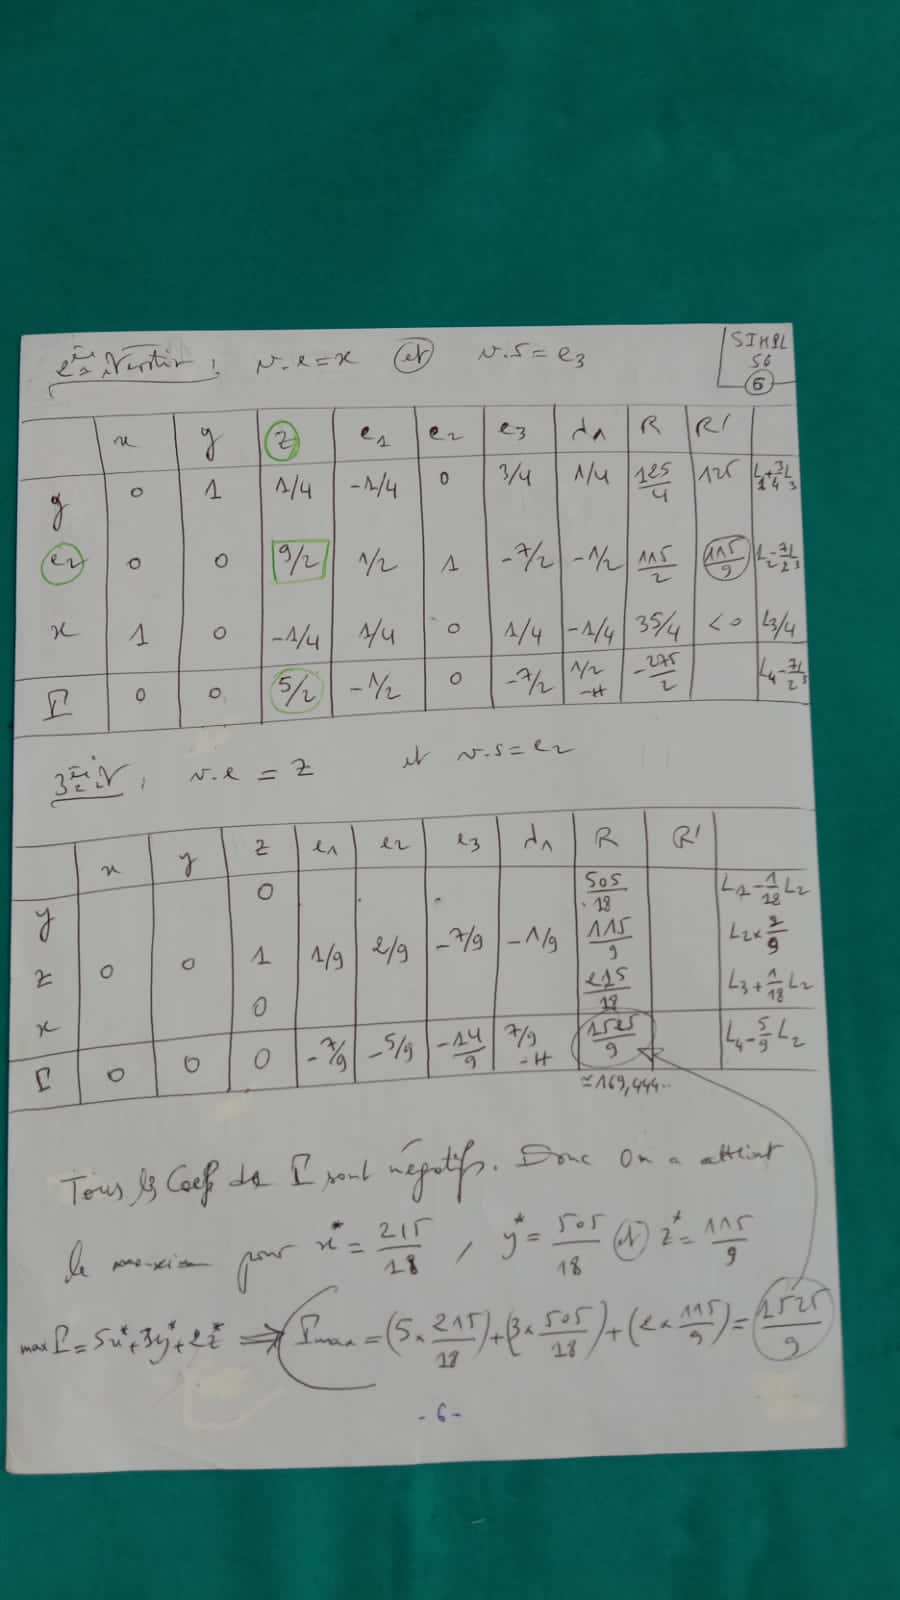 2ème itération : v.e = x et v.s = e3
SIMPL
S6
6
x y z e1 e2 e3 d1 R R'
y 0 1 1/4 -1/4 0 3/4 1/4 125/4 125 L1+3/4L3
e2 0 0 9/2 1/2 1 -7/2 -1/2 115/2 115/9 L2-7/2L3
x 1 0 -1/4 1/4 0 1/4 -1/4 35/4 <0 L3/4
Γ 0 0 5/2 -1/2 0 -7/2 1/2-M -275/2 L4-7/2L3
3ème it : v.e = z et v.s = e2
x y z e1 e2 e3 d1 R R'
y 0 . . 505/18 L1-1/18L2
z 0 0 1 1/9 2/9 -7/9 -1/9 115/9 L2×2/9
x 0 215/18 L3+1/18L2
Γ 0 0 0 -7/9 -5/9 -14/9 7/9-M 1525/9 L4-5/9L2
≈169,444..
Tous les Coef de Γ sont négatifs. Donc on a atteint
le maximum pour x* = 215/18 , y* = 505/18 et z* = 115/9
max Γ = 5x*+3y*+2z* ⇒ Γmax = (5×215/18)+(3×505/18)+(2×115/9) = 1525/9
-6-